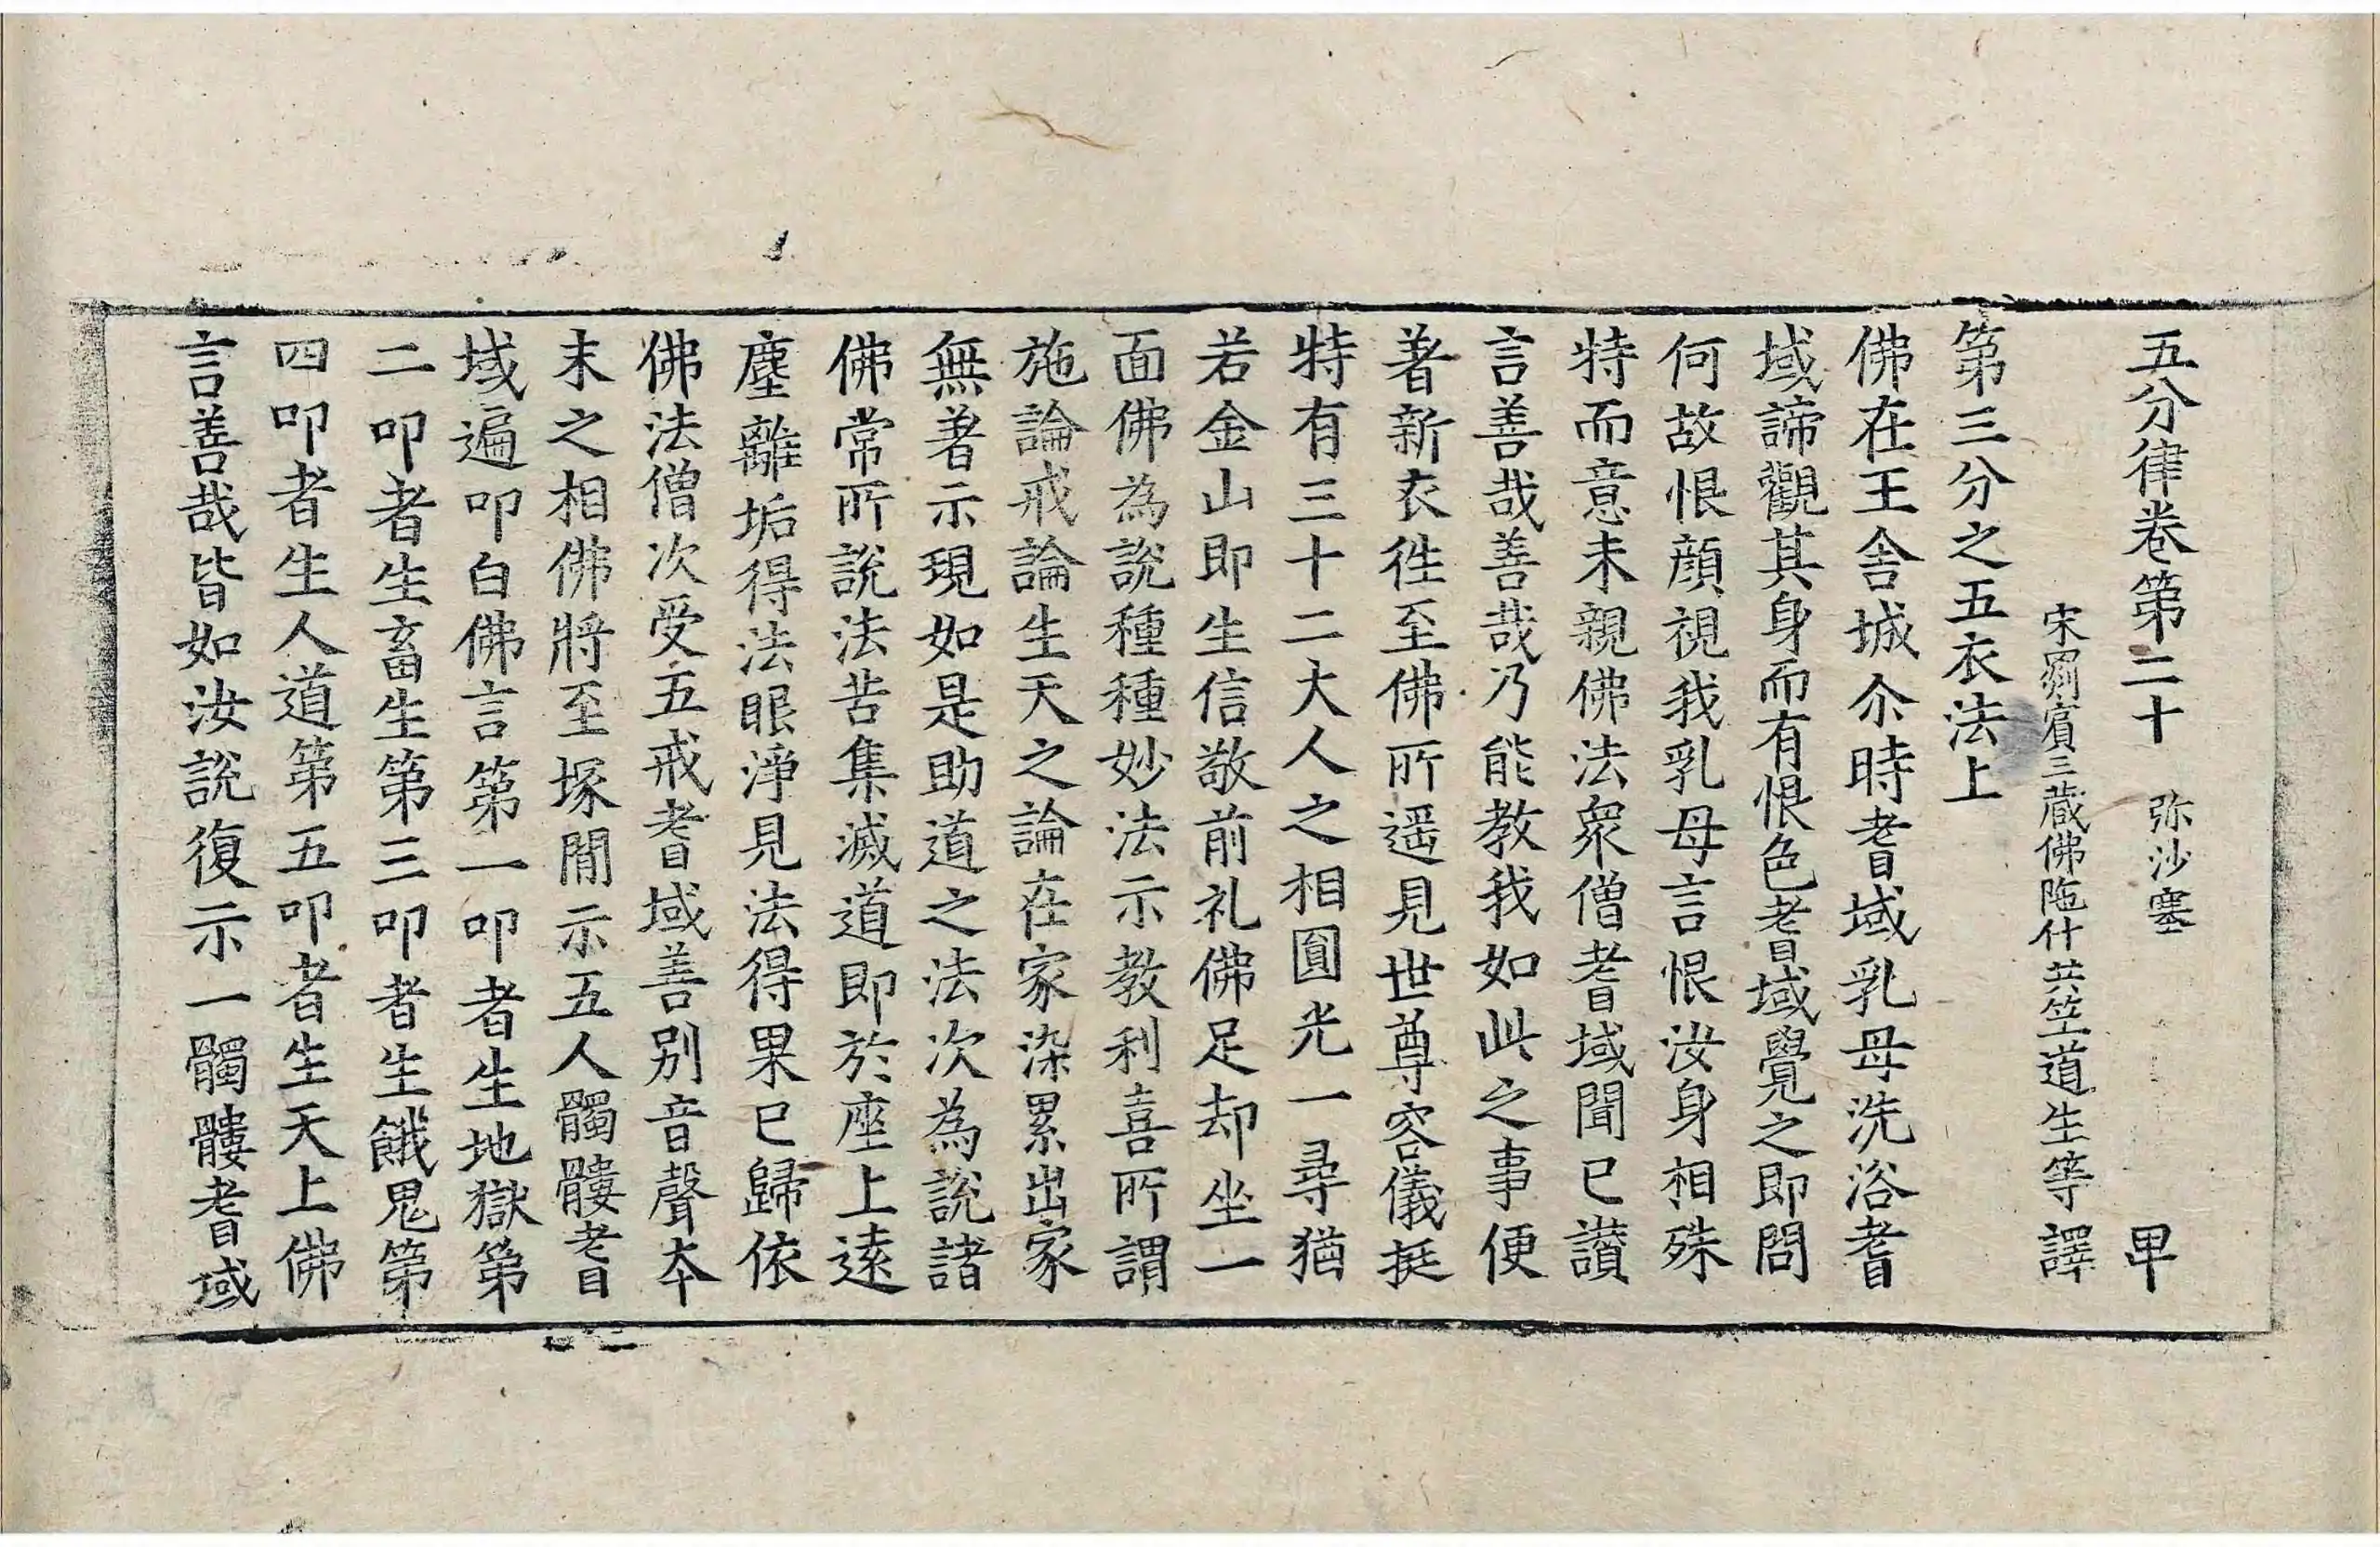 五分律卷第二十 弥沙塞 卑
宋罽賓三藏佛陁什共笁道生等譯
第三分之五衣法上
佛在王舍城尒時耆域乳母洗浴耆
域諦觀其身而有恨色耆域覺之即問
何故恨顔視我乳母言恨汝身相殊
特而意未親佛法衆僧耆域聞已讃
言善哉善哉乃能教我如此之事便
著新衣徃至佛所遥見世尊容儀挺
特有三十二大人之相圓光一尋猶
若金山即生信敬前礼佛足却坐一
面佛為說種種妙法示教利喜所謂
施論戒論生天之論在家染累出家
無著示現如是助道之法次為說諸
佛常所說法苦集滅道即於座上遠
塵離垢得法眼淨見法得果已歸依
佛法僧次受五戒耆域善別音聲夲
末之相佛將至塚間示五人髑髏耆
域遍叩白佛言第一叩者生地獄第
二叩者生畜生第三叩者生餓鬼第
四叩者生人道第五叩者生天上佛
言善哉皆如汝說復示一髑髏耆域